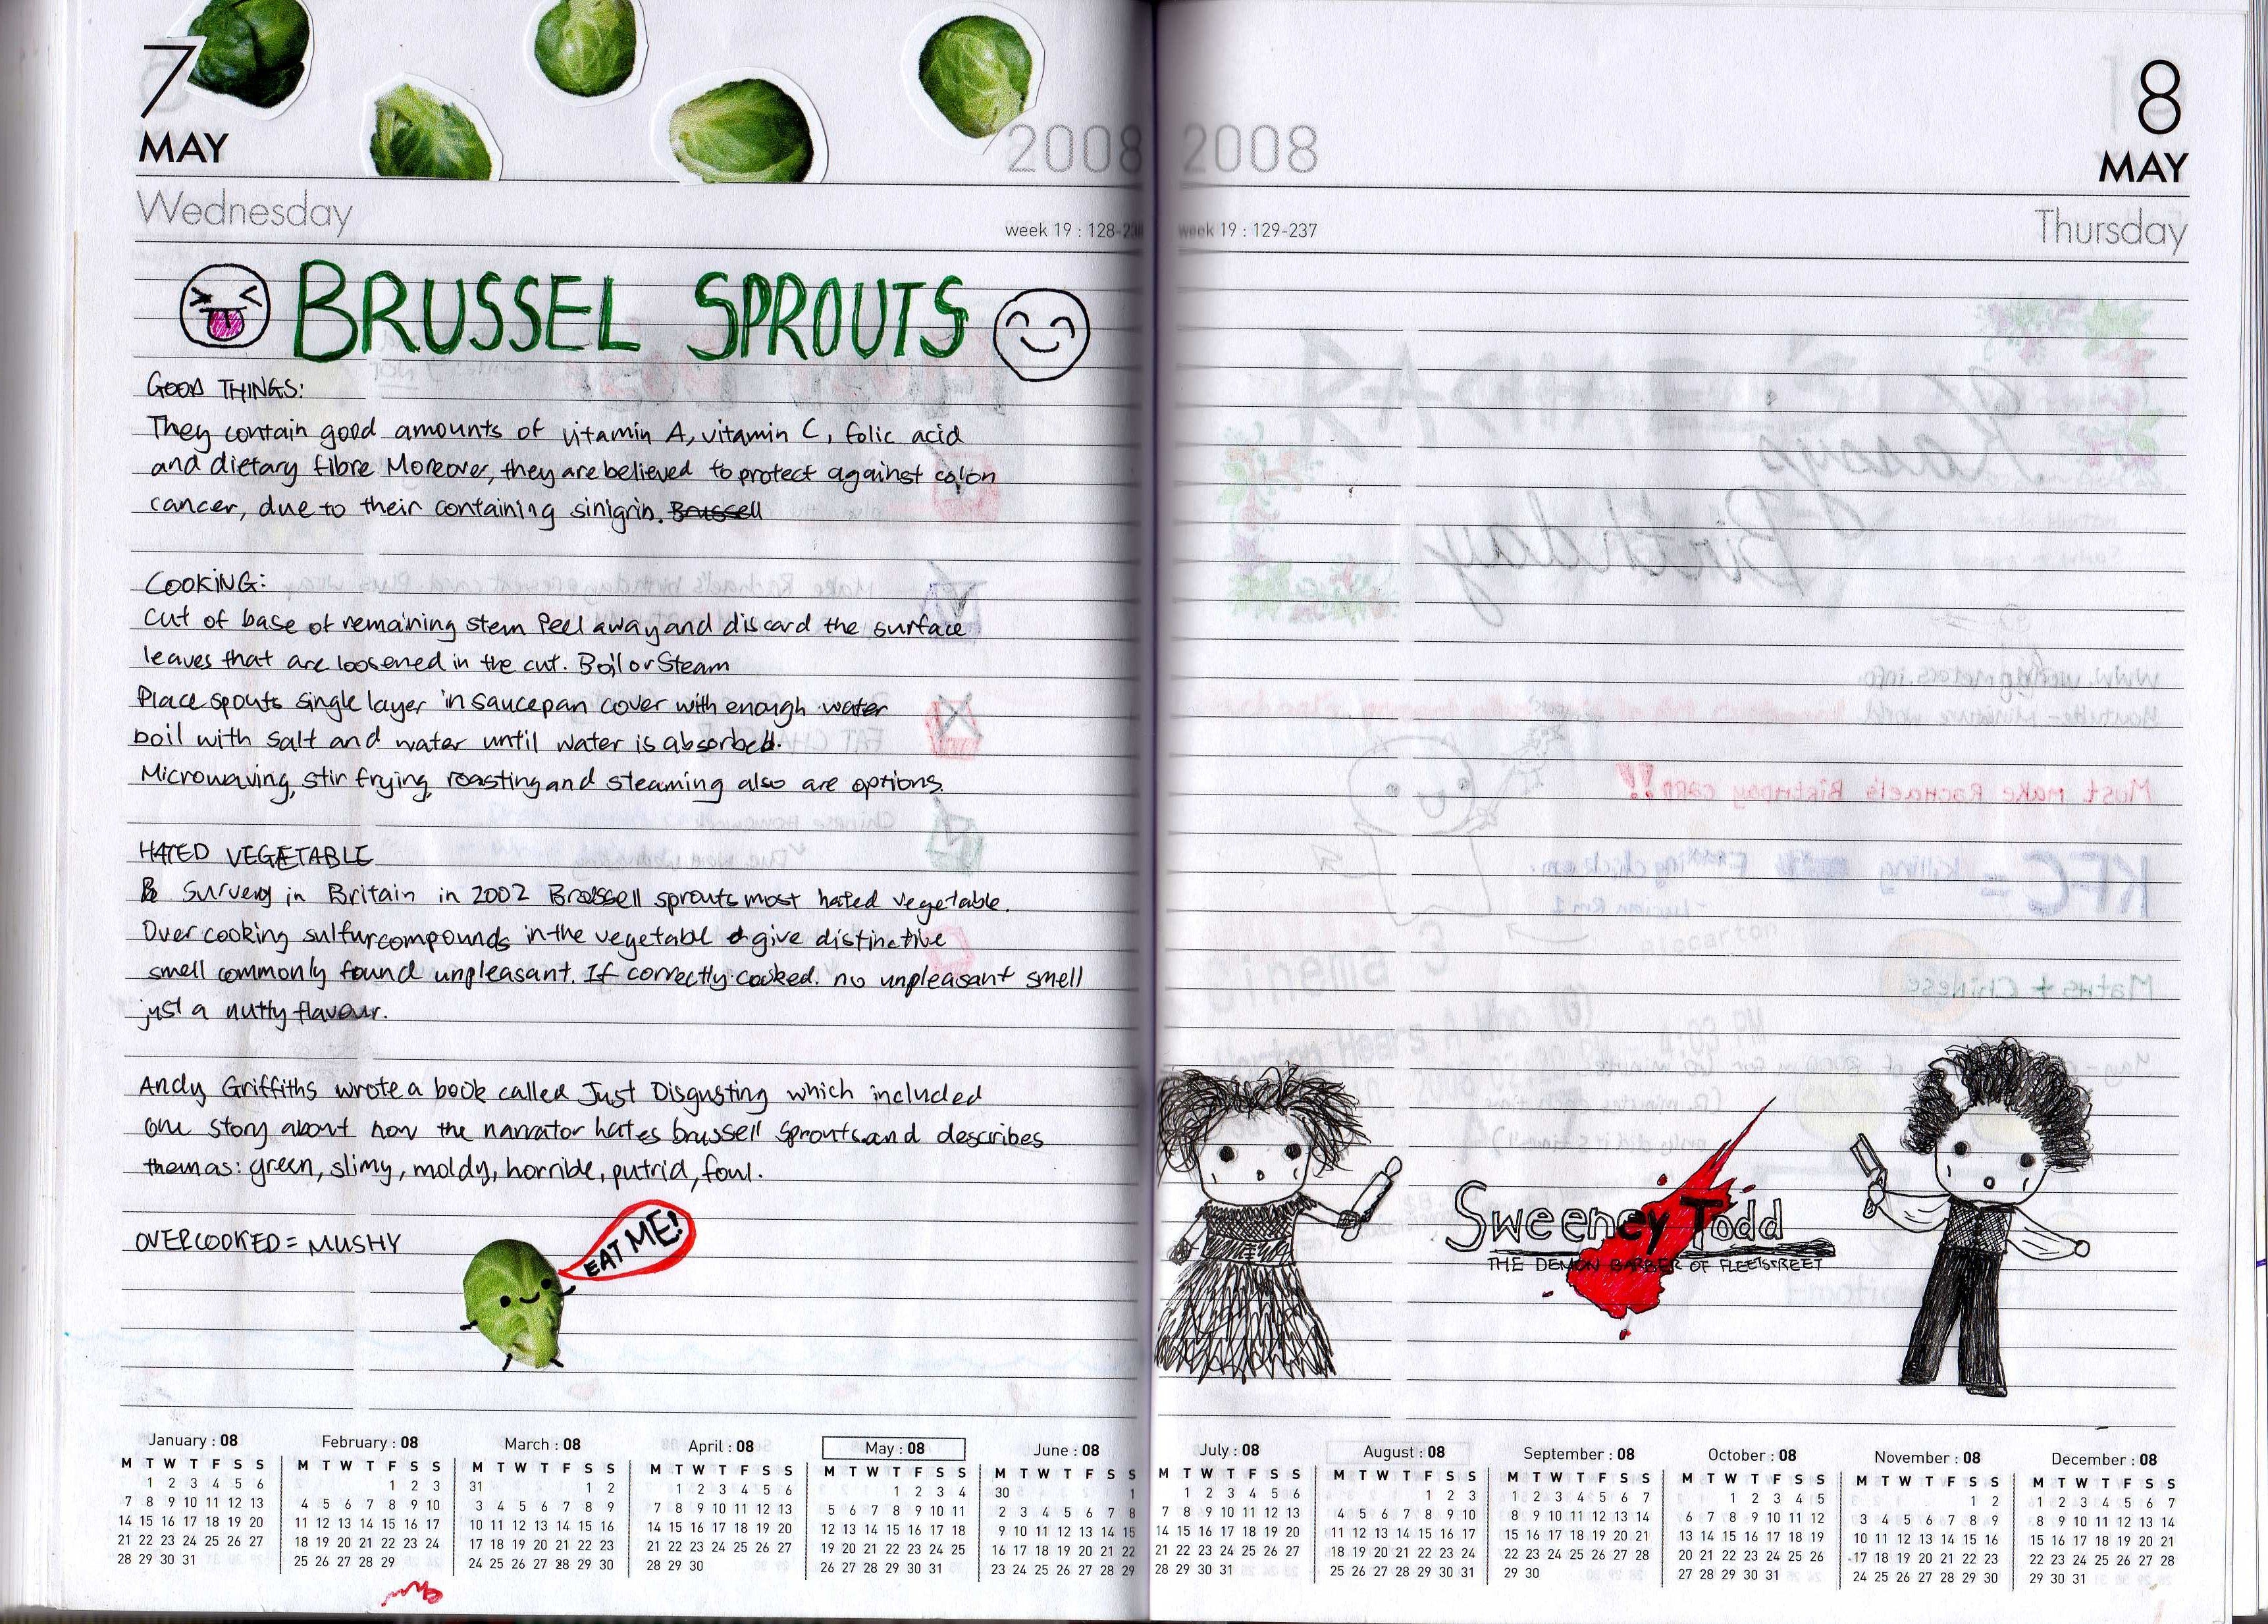 7
MAY
2008
Wednesday
week 19 : 128-
BRUSSEL SPROUTS
GOOD THINGS:
They contain good amounts of vitamin A, vitamin C, folic acid
and dietary fibre Moreover, they are believed to protect against colon
cancer, due to their containing sinigrin. Brussell
COOKING:
Cut of base of remaining stem Peel away and discard the surface
leaves that are loosened in the cut. Boil or Steam
Place spouts single layer in saucepan cover with enough water
boil with salt and water until water is absorbed.
Microwaving, stir frying, roasting and steaming also are options.
HATED VEGETABLE
Survey in Britain in 2002 Brussell sprouts most hated vegetable.
Over cooking sulfur compounds in the vegetable give distinctive
smell commonly found unpleasant. If correctly cooked. no unpleasant smell
just a nutty flavour.
Andy Griffiths wrote a book called Just Disgusting which included
one story about how the narrator hates brussell sprouts and describes
them as: green, slimy, moldy, horrible, putrid, foul.
OVERCOOKED = MUSHY
EAT ME!
January : 08
M T W T F S S
1 2 3 4 5 6
7 8 9 10 11 12 13
14 15 16 17 18 19 20
21 22 23 24 25 26 27
28 29 30 31
February : 08
M T W T F S S
1 2 3
4 5 6 7 8 9 10
11 12 13 14 15 16 17
18 19 20 21 22 23 24
25 26 27 28 29
March : 08
M T W T F S S
31 1 2
3 4 5 6 7 8 9
10 11 12 13 14 15 16
17 18 19 20 21 22 23
24 25 26 27 28 29 30
April : 08
M T W T F S S
1 2 3 4 5 6
7 8 9 10 11 12 13
14 15 16 17 18 19 20
21 22 23 24 25 26 27
28 29 30
May : 08
M T W T F S S
1 2 3 4
5 6 7 8 9 10 11
12 13 14 15 16 17 18
19 20 21 22 23 24 25
26 27 28 29 30 31
June : 08
M T W T F S S
30 1
2 3 4 5 6 7 8
9 10 11 12 13 14 15
16 17 18 19 20 21 22
23 24 25 26 27 28 29
2008
8
MAY
week 19 : 129-237
Thursday
Sweeney Todd
THE DEMON BARBER OF FLEETSTREET
July : 08
M T W T F S S
1 2 3 4 5 6
7 8 9 10 11 12 13
14 15 16 17 18 19 20
21 22 23 24 25 26 27
28 29 30 31
August : 08
M T W T F S S
1 2 3
4 5 6 7 8 9 10
11 12 13 14 15 16 17
18 19 20 21 22 23 24
25 26 27 28 29 30 31
September : 08
M T W T F S S
1 2 3 4 5 6 7
8 9 10 11 12 13 14
15 16 17 18 19 20 21
22 23 24 25 26 27 28
29 30
October : 08
M T W T F S S
1 2 3 4 5
6 7 8 9 10 11 12
13 14 15 16 17 18 19
20 21 22 23 24 25 26
27 28 29 30 31
November : 08
M T W T F S S
1 2
3 4 5 6 7 8 9
10 11 12 13 14 15 16
17 18 19 20 21 22 23
24 25 26 27 28 29 30
December : 08
M T W T F S S
1 2 3 4 5 6 7
8 9 10 11 12 13 14
15 16 17 18 19 20 21
22 23 24 25 26 27 28
29 30 31